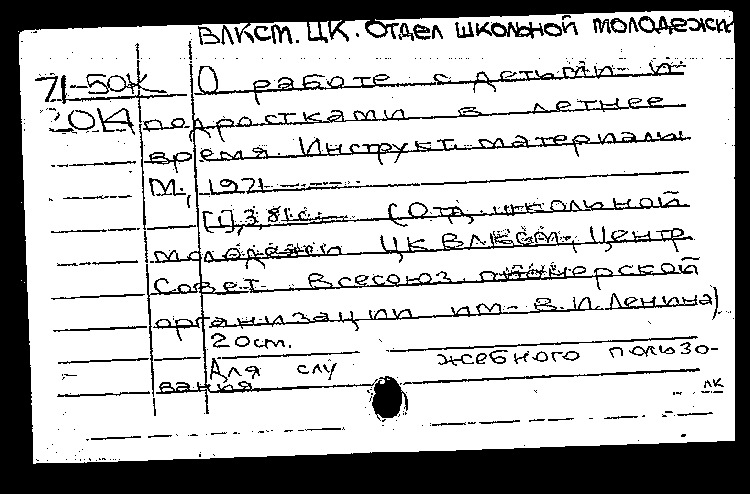 ВЛКСМ. ЦК. Отдел школьной молодежи
71-50К О работе с детьми и
подростками в летнее
время. Инструкт. материалы
М., 1971
[1], 3, 81 с. (Отд. школьной
молодежи ЦК ВЛКСМ, Центр.
Совет Всесоюз. пионерской
организации им. В.И.Ленина)
20 см.
Для служебного пользо-
вания
лк